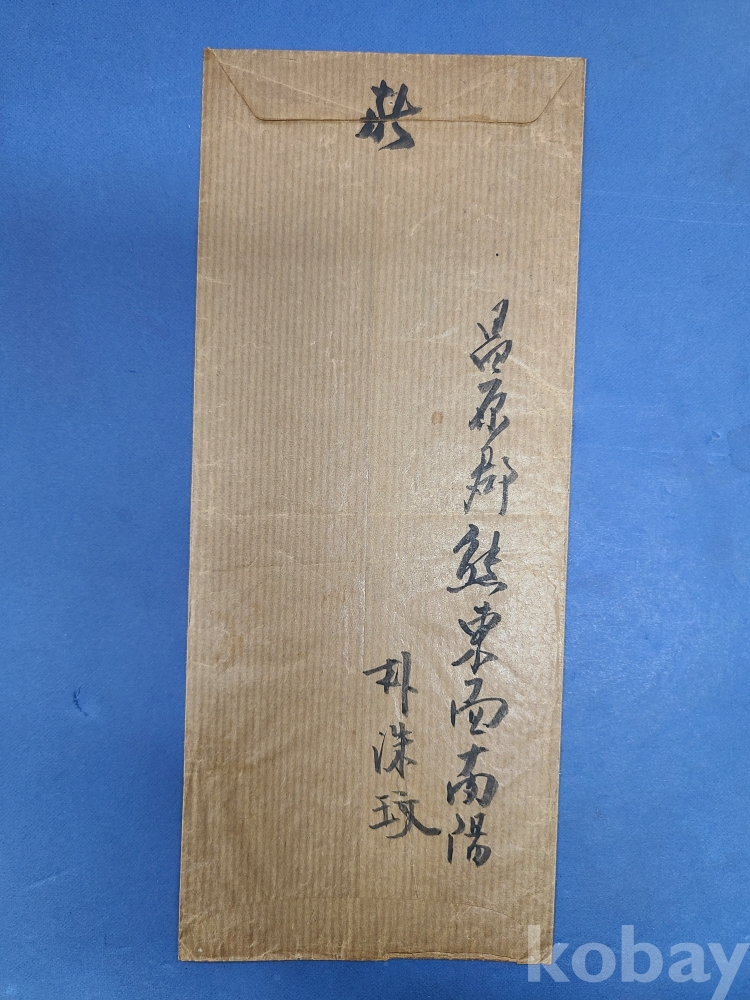 昌原郡熊東面南陽
朴洙玟
kobay